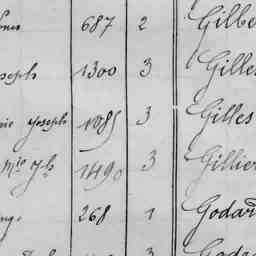 687 2 Gilbe
oseph 1300 3 Gilles
rie Joseph 1085 3 Gilles
Mie Jh 1490 3 Gillier
268 1 Godard